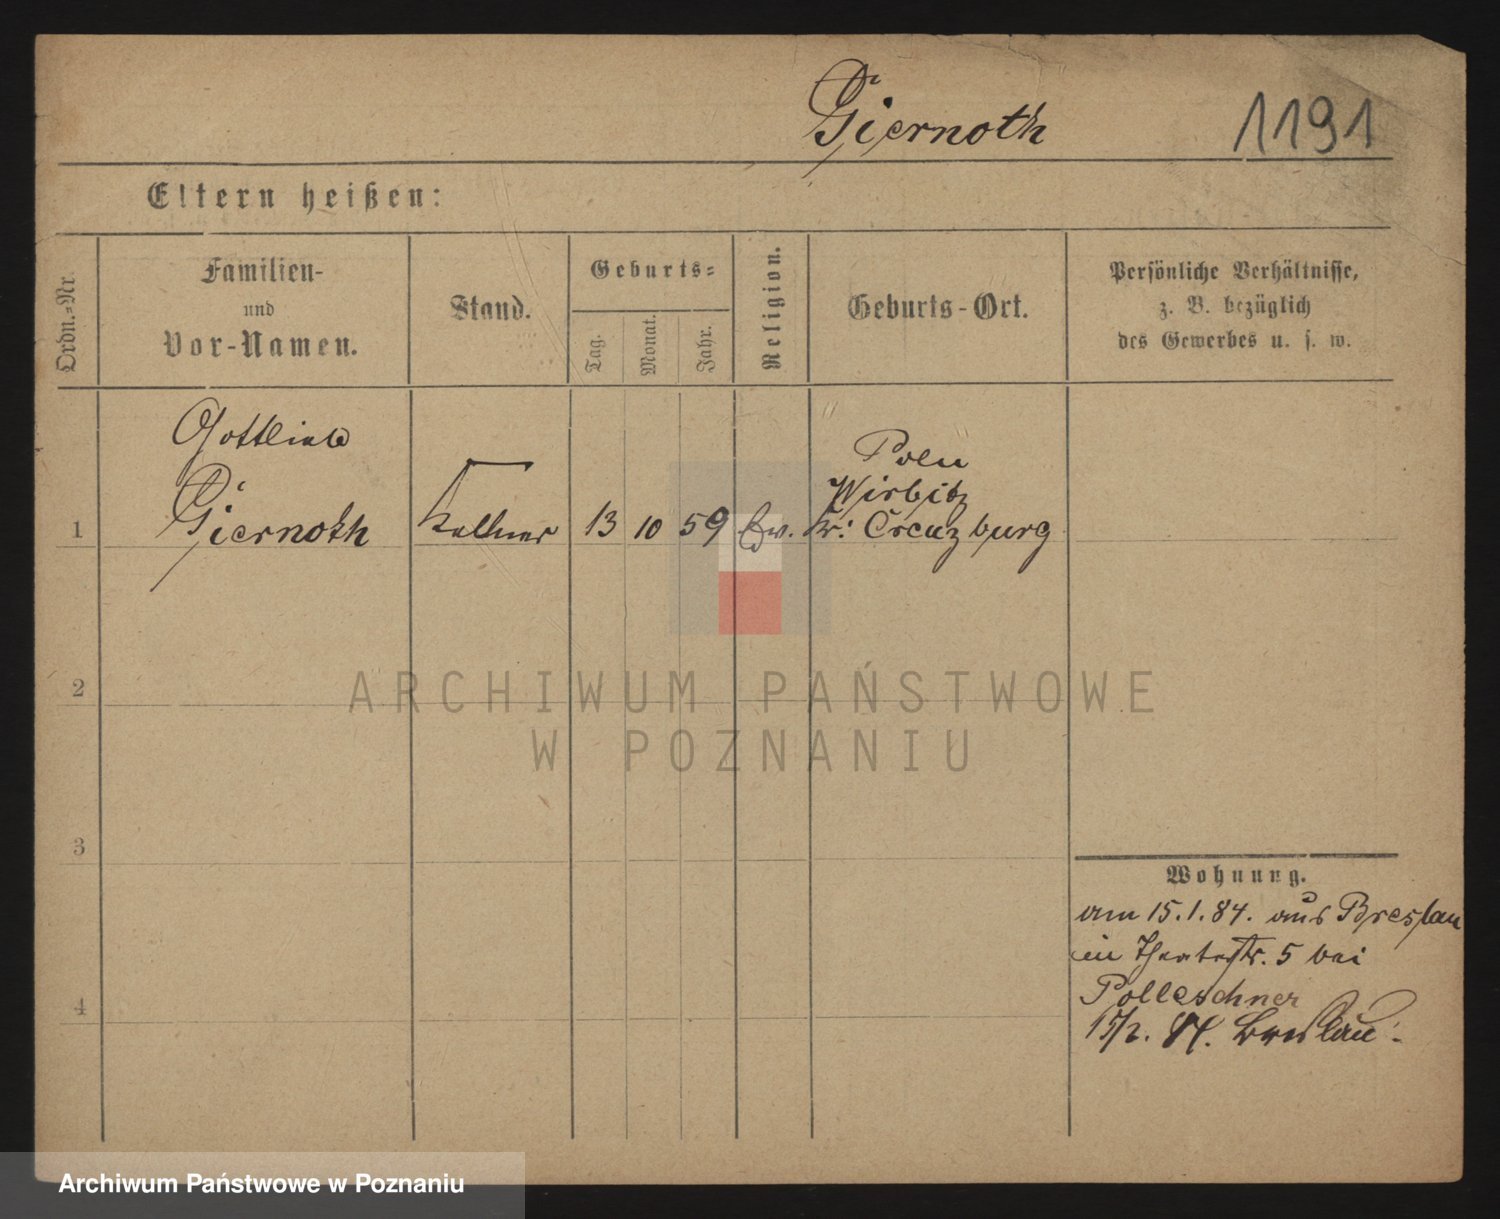 Giernoth
1191
Eltern heißen:
Ordn.-Nr.
Familien-
und
Vor-Namen.
Stand.
Geburts-
Tag.
Monat.
Jahr.
Religion.
Geburts-Ort.
Persönliche Verhältnisse,
z. B. bezüglich
des Gewerbes u. s. w.
Gottlieb
Giernoth
1
Kellner
13
10
59
Ev.
Polen
Wirbitz
Kr. Creuzburg
2
3
4
Wohnung.
am 15.1.84. aus Breslau
in Theaterstr. 5 bei
Polleschner
15/2. 84. Breslau.
ARCHIWUM PAŃSTWOWE
W POZNANIU
Archiwum Państwowe w Poznaniu